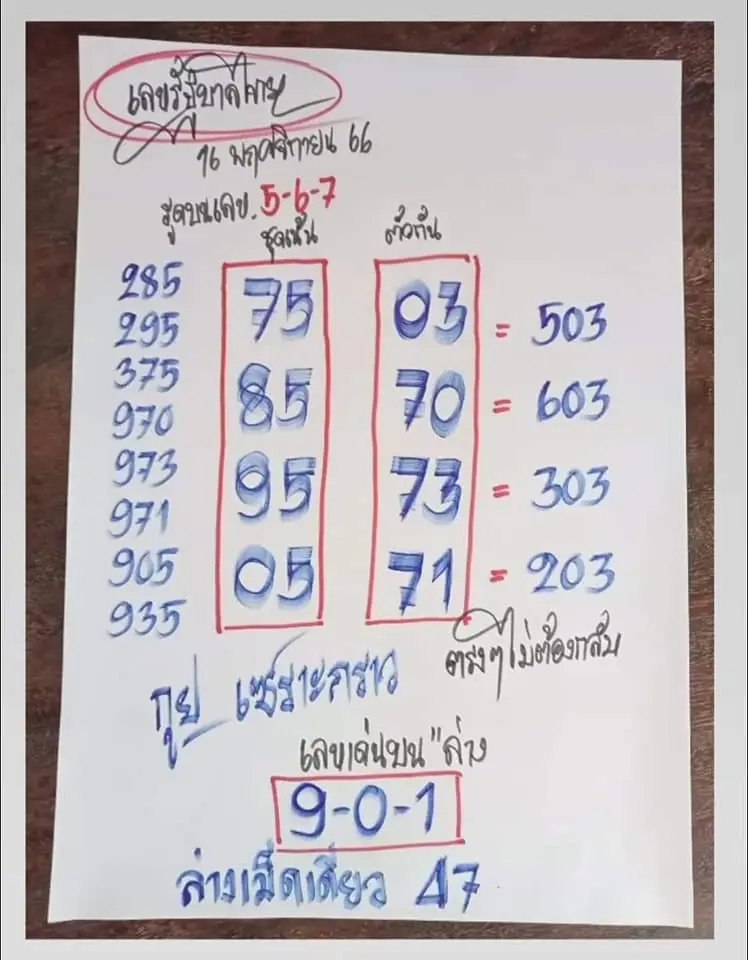 เลขรัฐบาลไทย
16 พฤศจิกายน 66
รูดบนเลข. 5-6-7
ชุดเน้น ตัวกัน
285 75 03 = 503
295
375 85 70 = 603
970
973 95 73 = 303
971
905 05 71 = 203
935
ตรงๆไม่ต้องกลับ
กูย เซราะกราว
เลขเด่นบน"ล่าง
9-0-1
ล่างเม็ดเดียว 47